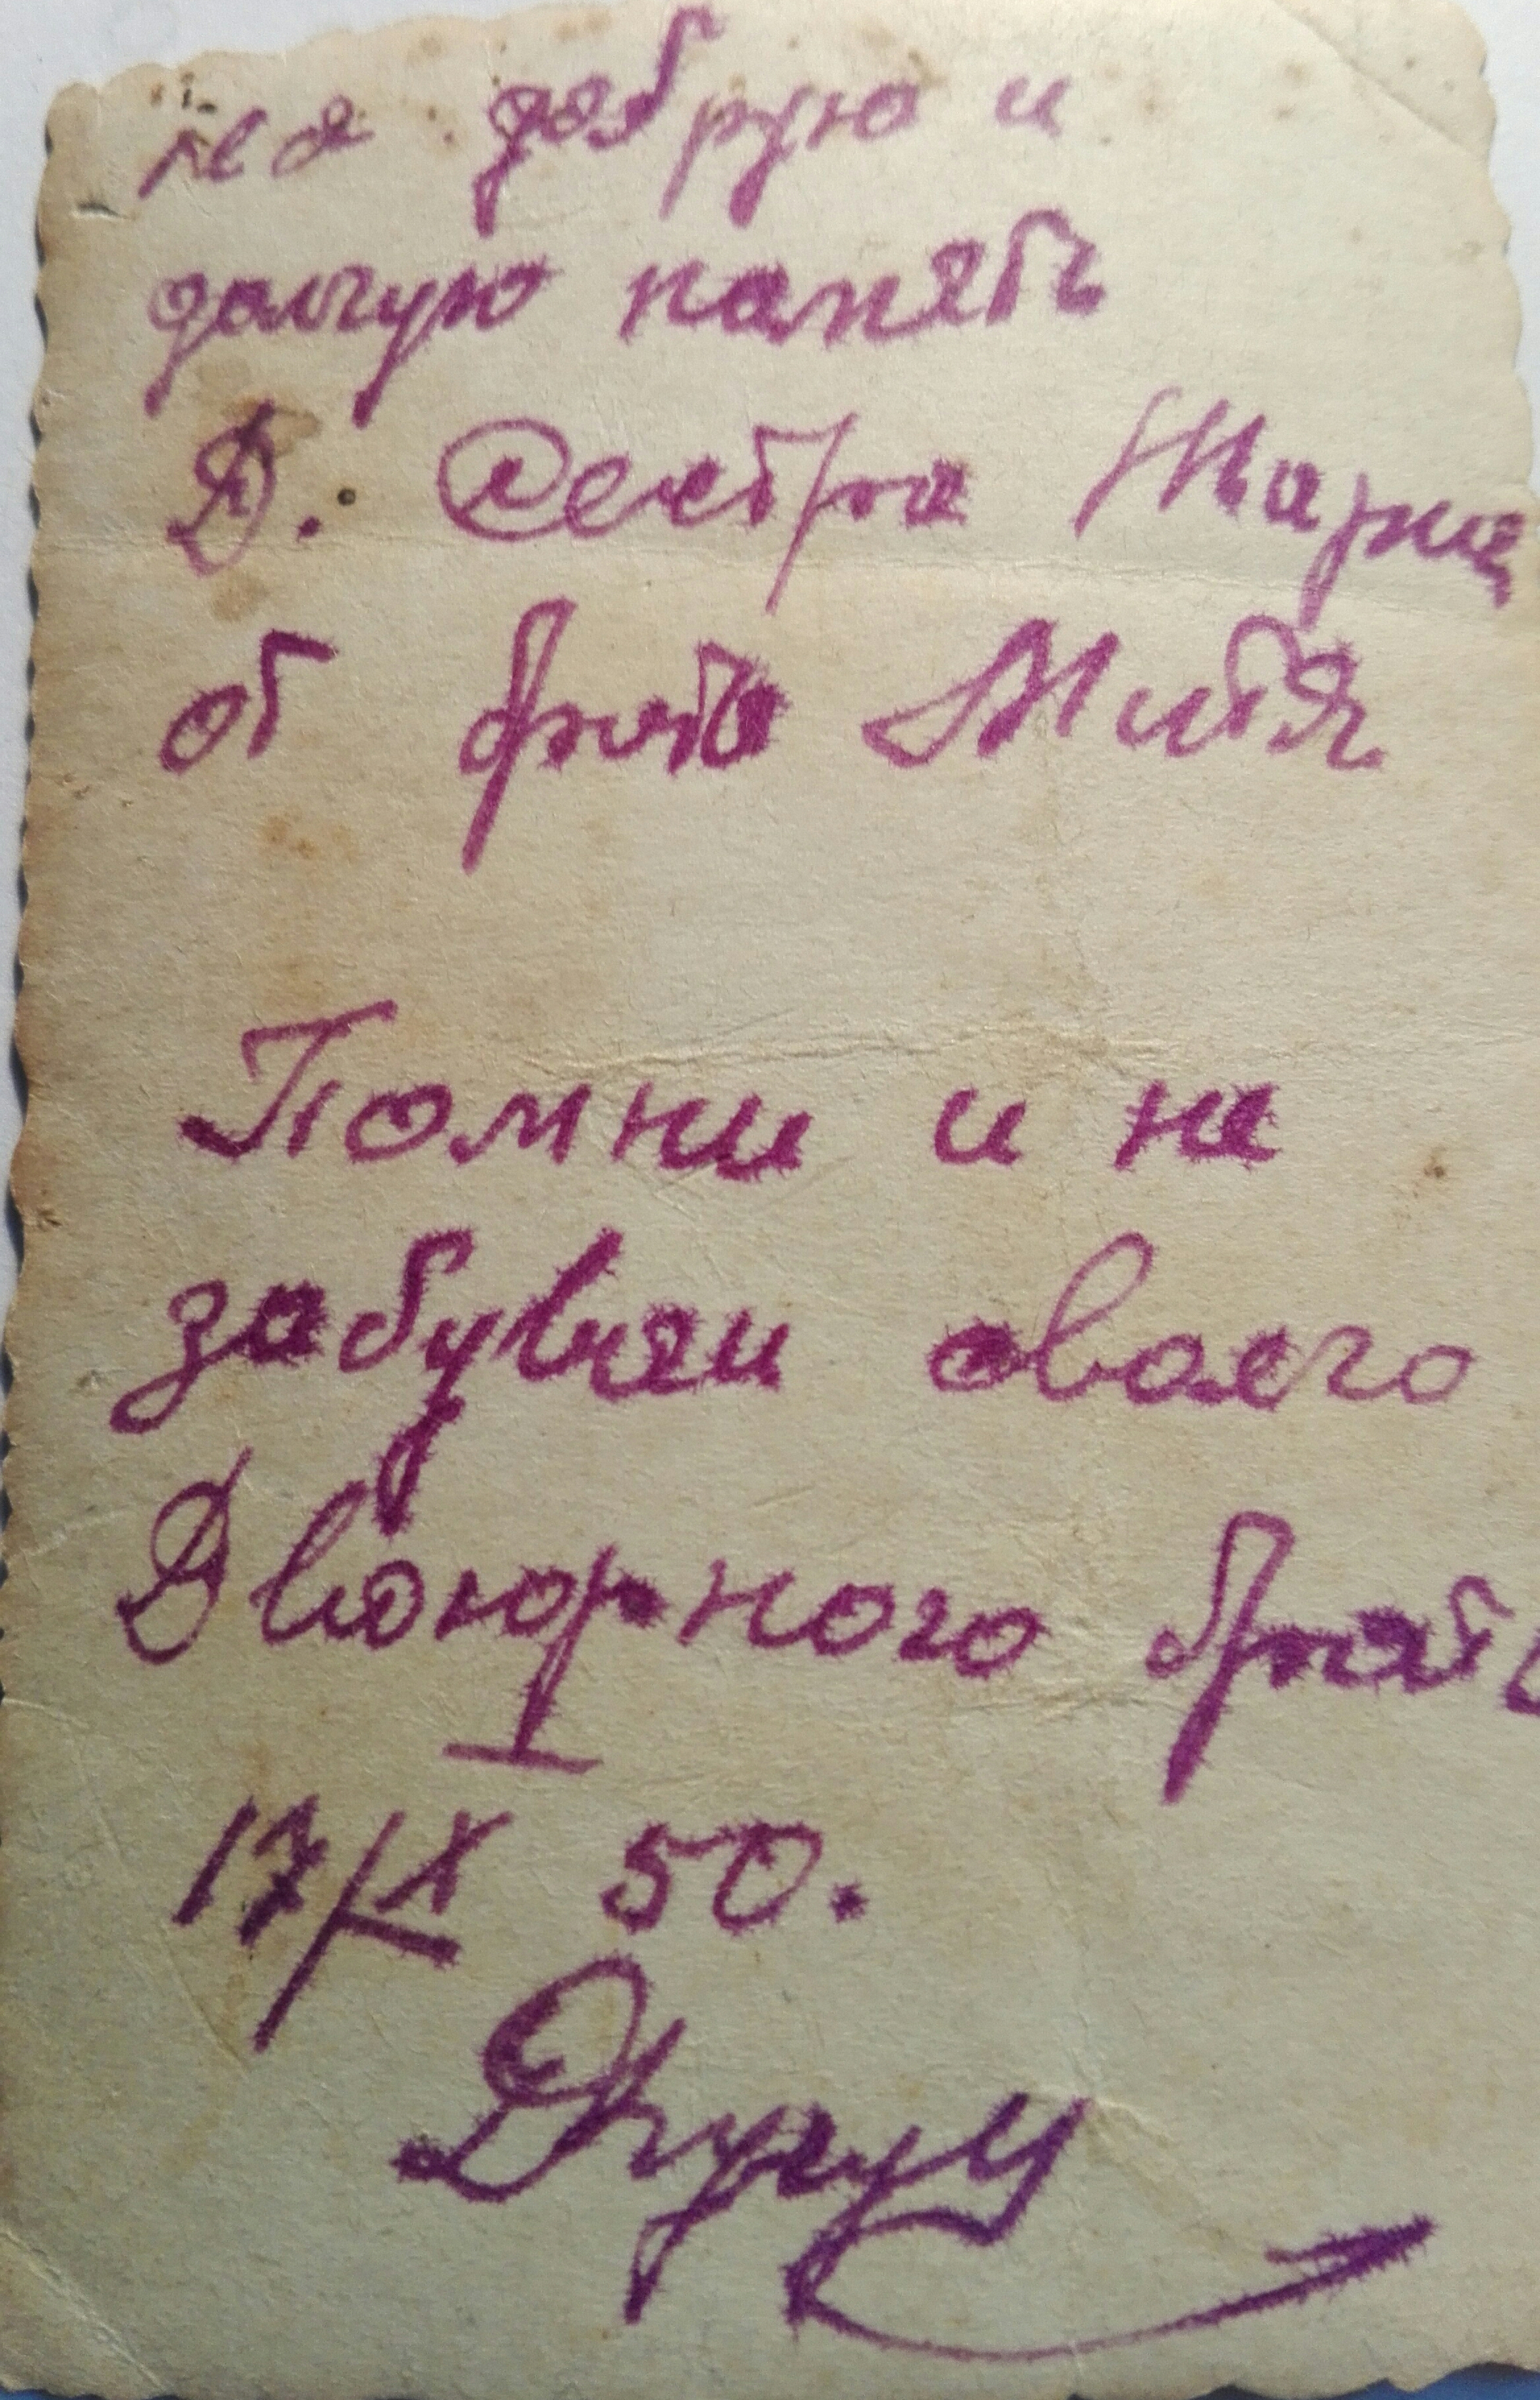 на добрую и
долгую память
Д. Сестра Мария
от брата Митя
Помни и не
забувай своего
Двоюрного брата
17/IX 50.